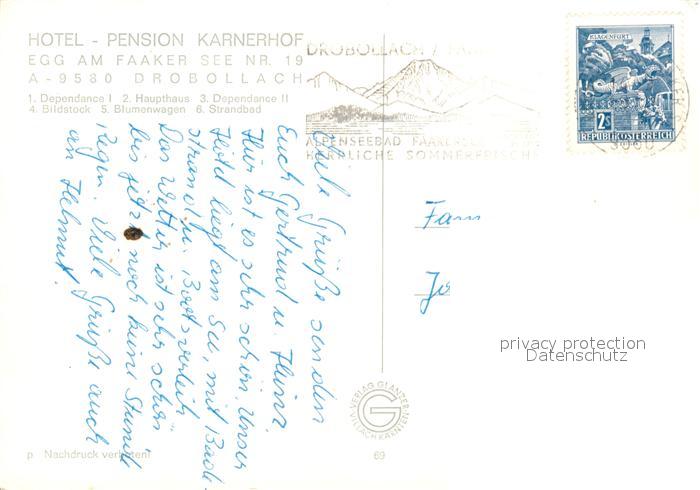 HOTEL - PENSION KARNERHOF
EGG AM FAAKER SEE NR. 19
A - 9580 DROBOLLACH
1. Dependance I 2. Haupthaus 3. Dependance II
4. Bildstock 5. Blumenwagen 6. Strandbad
DROBOLLACH /
ALPENSEEBAD FAAKERSEE
HERRLICHE SOMMERFRISCHE
KLAGENFURT
2S
REPUBLIK ÖSTERREICH
Viele Grüße senden
Euch Gertrud u. Heinz
Hier ist es sehr schön. Unser
Hotel liegt am See, mit Bade-
strand u. Bootsverleih
Das Wetter ist sehr schön
bis jetzt noch keine Stunde
Regen. Viele Grüße auch
an Helmut.
Fam
privacy protection
Datenschutz
VERLAG GLANZER
VILLACH KÄRNTEN
G
p Nachdruck verboten!
69